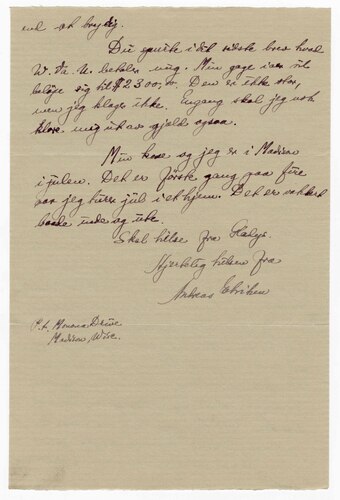 ved at bry dig.
Du spurte i dit siste brev hvad
W. Va. U. betaler mig. Min gage i aar vil
beløpe sig til $2300.00. Den er ikke stor,
men jeg klager ikke. Engang skal jeg nok
klare mig ut av gjeld ogsaa.
Min kone og jeg er i Madison
i julen. Det er første gang paa fire
aar jeg hev jul i et hjem. Det er vakkert
baade inde og ute.
Skal hilse fra Gladys.
Hjertelig hilsen fra
Andreas
P.t. Monona Drive
Madison, Wisc.